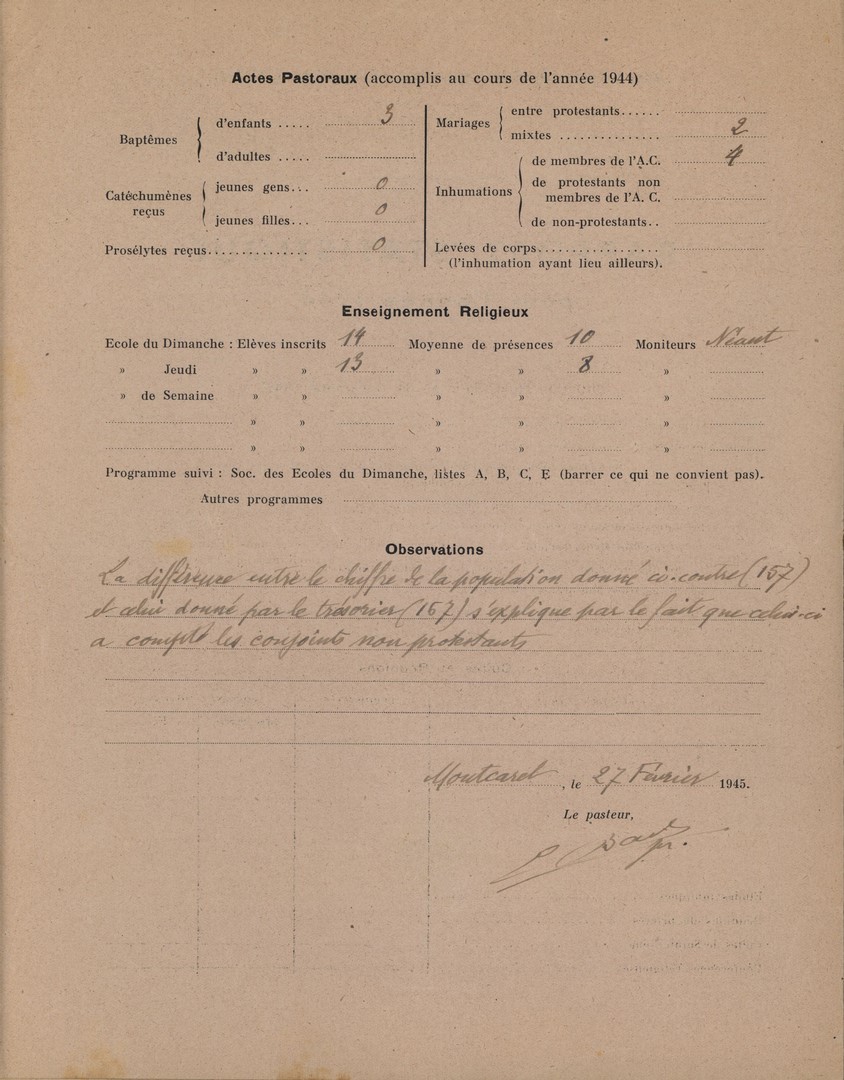 Actes Pastoraux (accomplis au cours de l'année 1944)
Baptêmes
d'enfants ..... 3
d'adultes .....
Catéchumènes reçus
jeunes gens... 0
jeunes filles... 0
Prosélytes reçus.............. 0
Mariages
entre protestants......
mixtes ............... 2
Inhumations
de membres de l'A.C. 4
de protestants non
membres de l'A. C.
de non-protestants..
Levées de corps..................
(l'inhumation ayant lieu ailleurs).
Enseignement Religieux
Ecole du Dimanche : Elèves inscrits 14 Moyenne de présences 10 Moniteurs Néant
» Jeudi » » 13 » » 8 »
» de Semaine » » » » »
» » » » »
» » » » »
Programme suivi : Soc. des Ecoles du Dimanche, listes A, B, C, E (barrer ce qui ne convient pas).
Autres programmes
Observations
La différence entre le chiffre de la population donné ci-contre (157)
et celui donné par le trésorier (167) s'explique par le fait que celui-ci
a compté les conjoints non protestants
Montcaret, le 27 Février 1945.
Le pasteur,